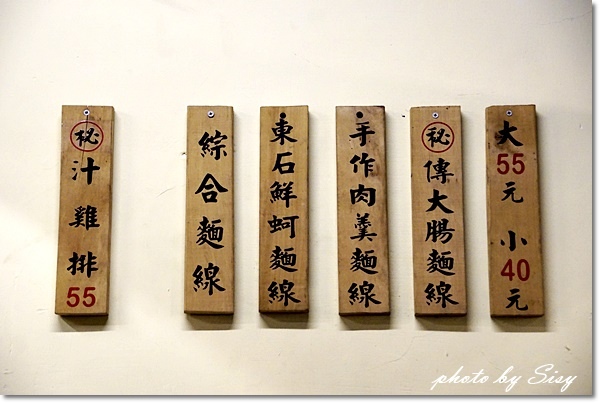 大55元 小40元
㊙傳大腸麵線
手作肉羹麵線
東石鮮蚵麵線
綜合麵線
㊙汁雞排55
photo by Sisy